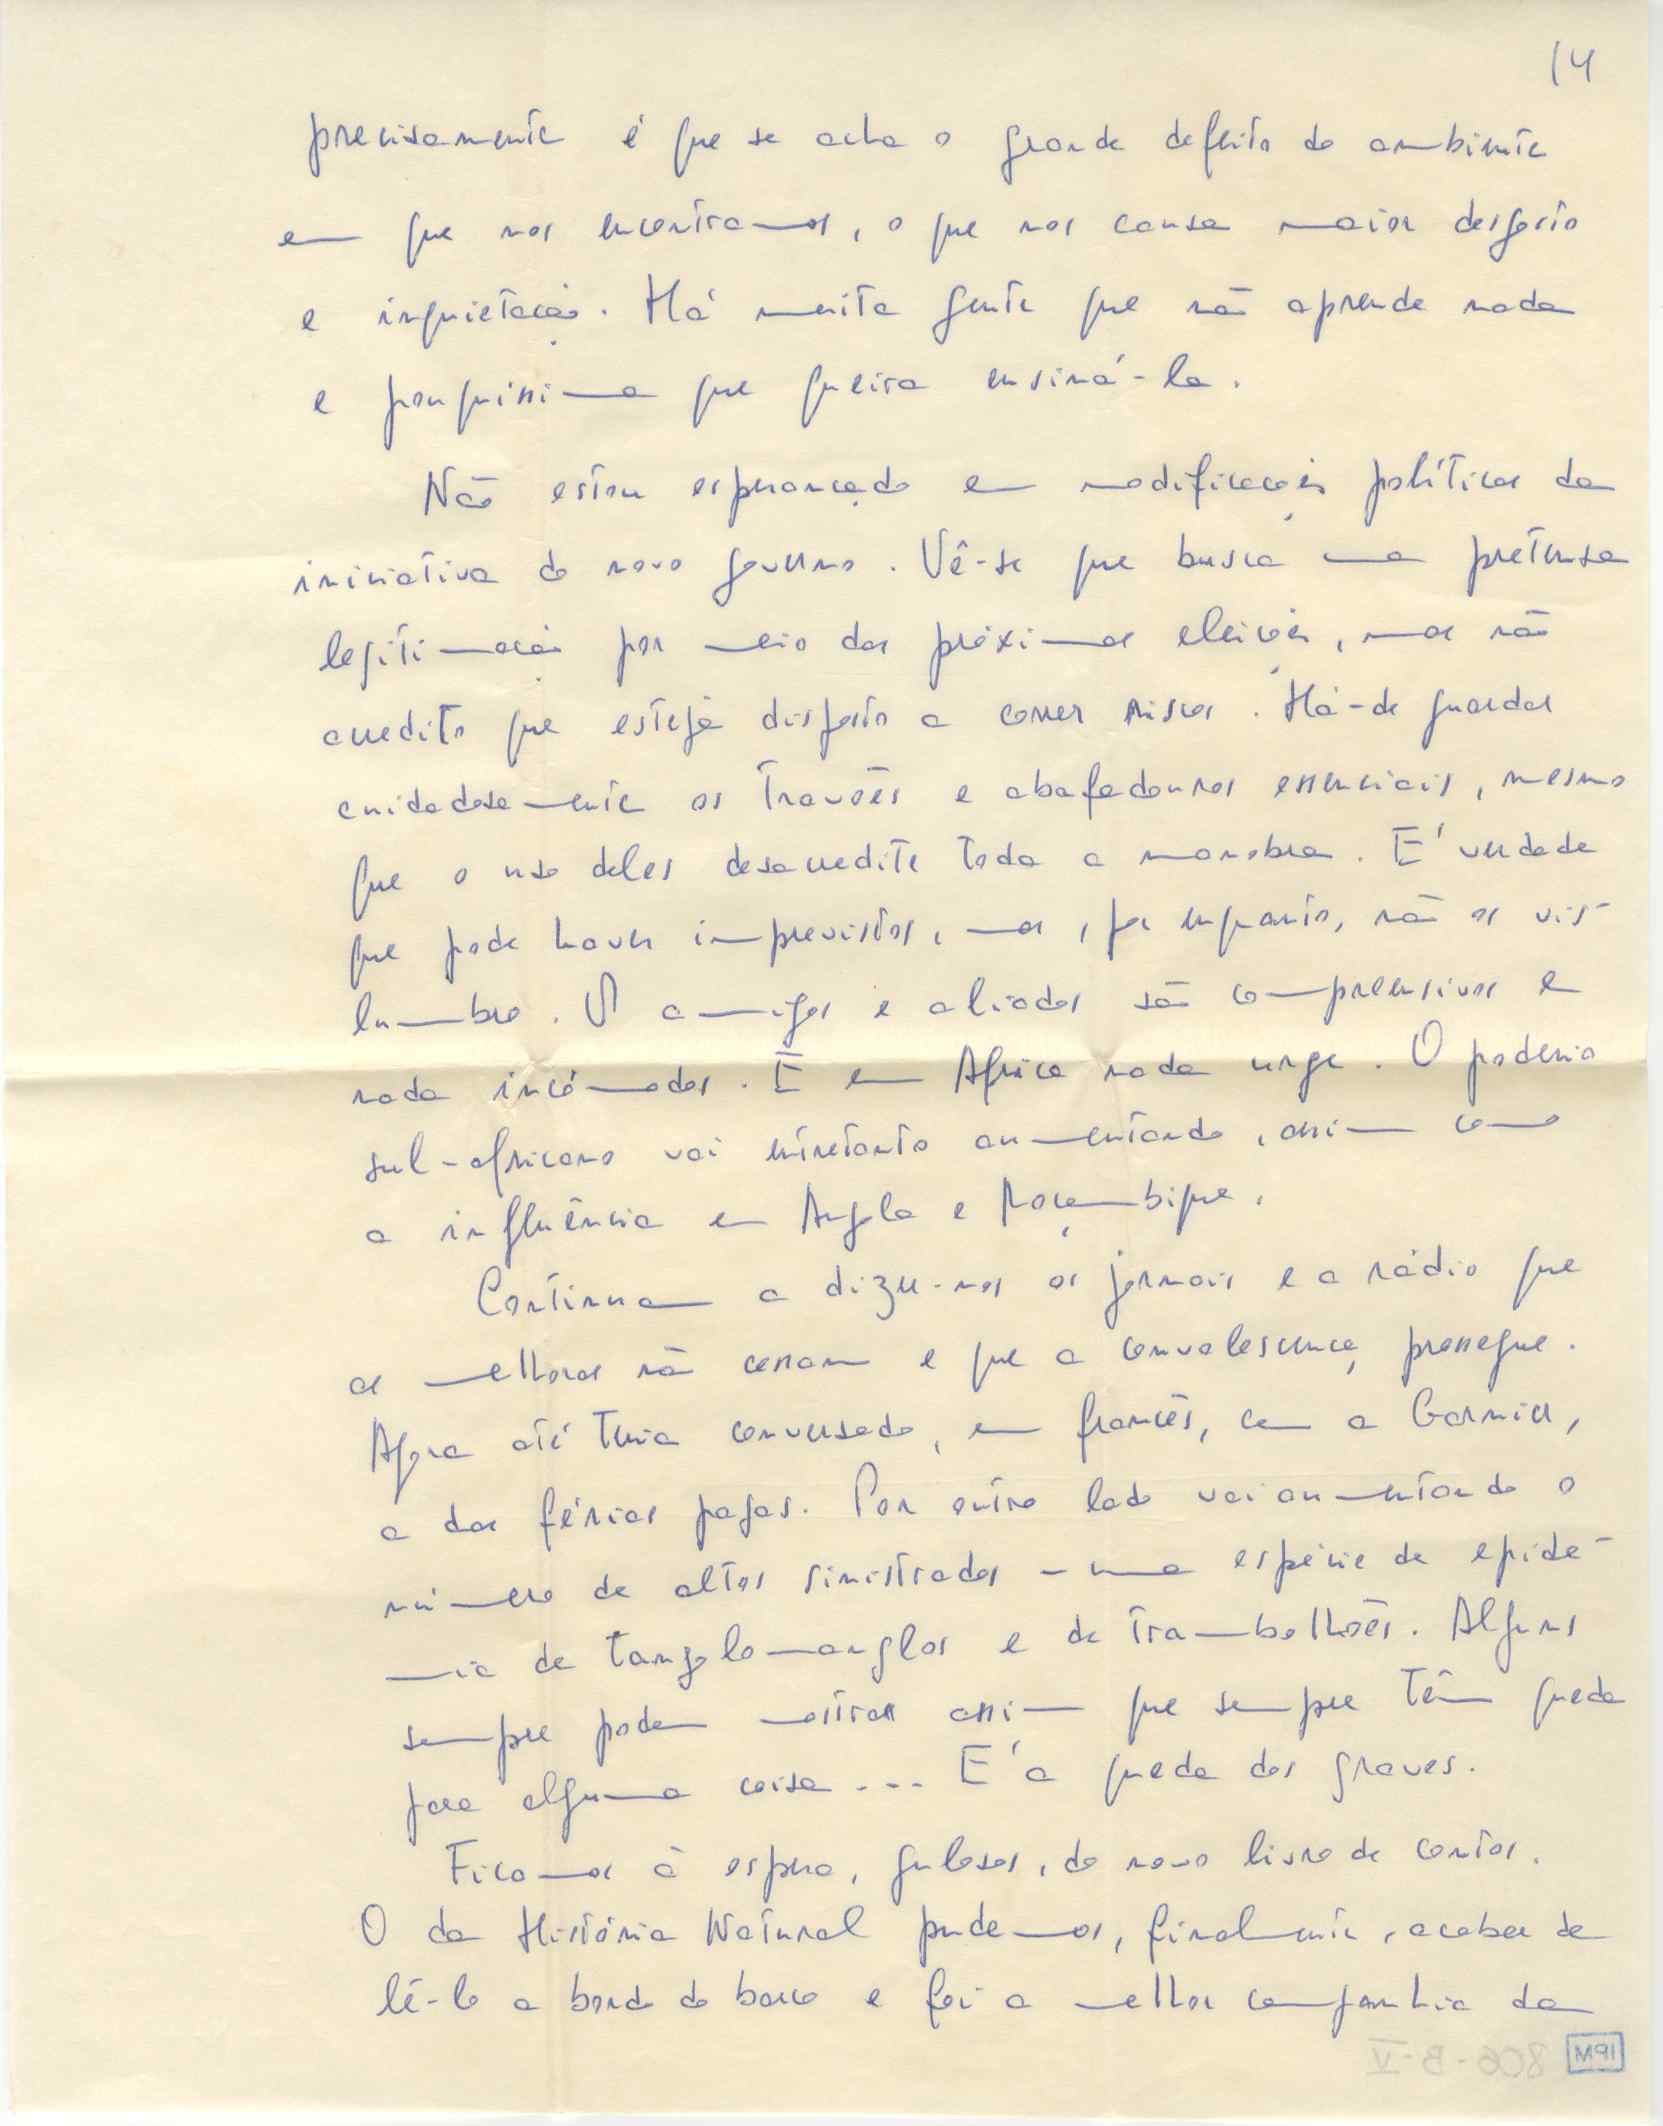 14
precisamente é que se acha o grande defeito do ambiente
em que nos encontramos, o que nos causa maior desgosto
e inquietação. Há muita gente que não aprende nada
e pouquíssima que queira ensiná-la.
Não estou esperançado em modificações políticas da
iniciativa do novo governo. Vê-se que busca uma pretensa
legitimação por meio das próximas eleições, mas não
acredito que esteja disposto a correr riscos. Há-de guardar
cuidadosamente os travões e abafadouros essenciais, mesmo
que o uso deles desacredite toda a manobra. É verdade
que pode haver imprevistos, mas, por enquanto, não os vis-
lumbro. Os amigos e aliados são compreensivos e
nada incómodos. E em África nada urge. O poderio
sul-africano vai entretanto aumentando, assim como
a influência em Angola e Moçambique.
Continuam a dizer-nos os jornais e a rádio que
as melhoras não cessam e que a convalescença prossegue.
Agora até teria conversado, em francês, com a Garnier,
a das férias pagas. Por outro lado vai aumentando o
número de altos sinistrados - uma espécie de epide-
mia de tangolomanglos e de trambolhões. Alguns
sempre podem mostrar assim que sempre têm queda
para alguma coisa.... É a queda dos graves.
Ficamos à espera, gulosos, do novo livro de contos.
O da História Natural pudemos, finalmente, acabar de
lê-lo a bordo do barco e foi a melhor companhia da
806-B-V
IPM